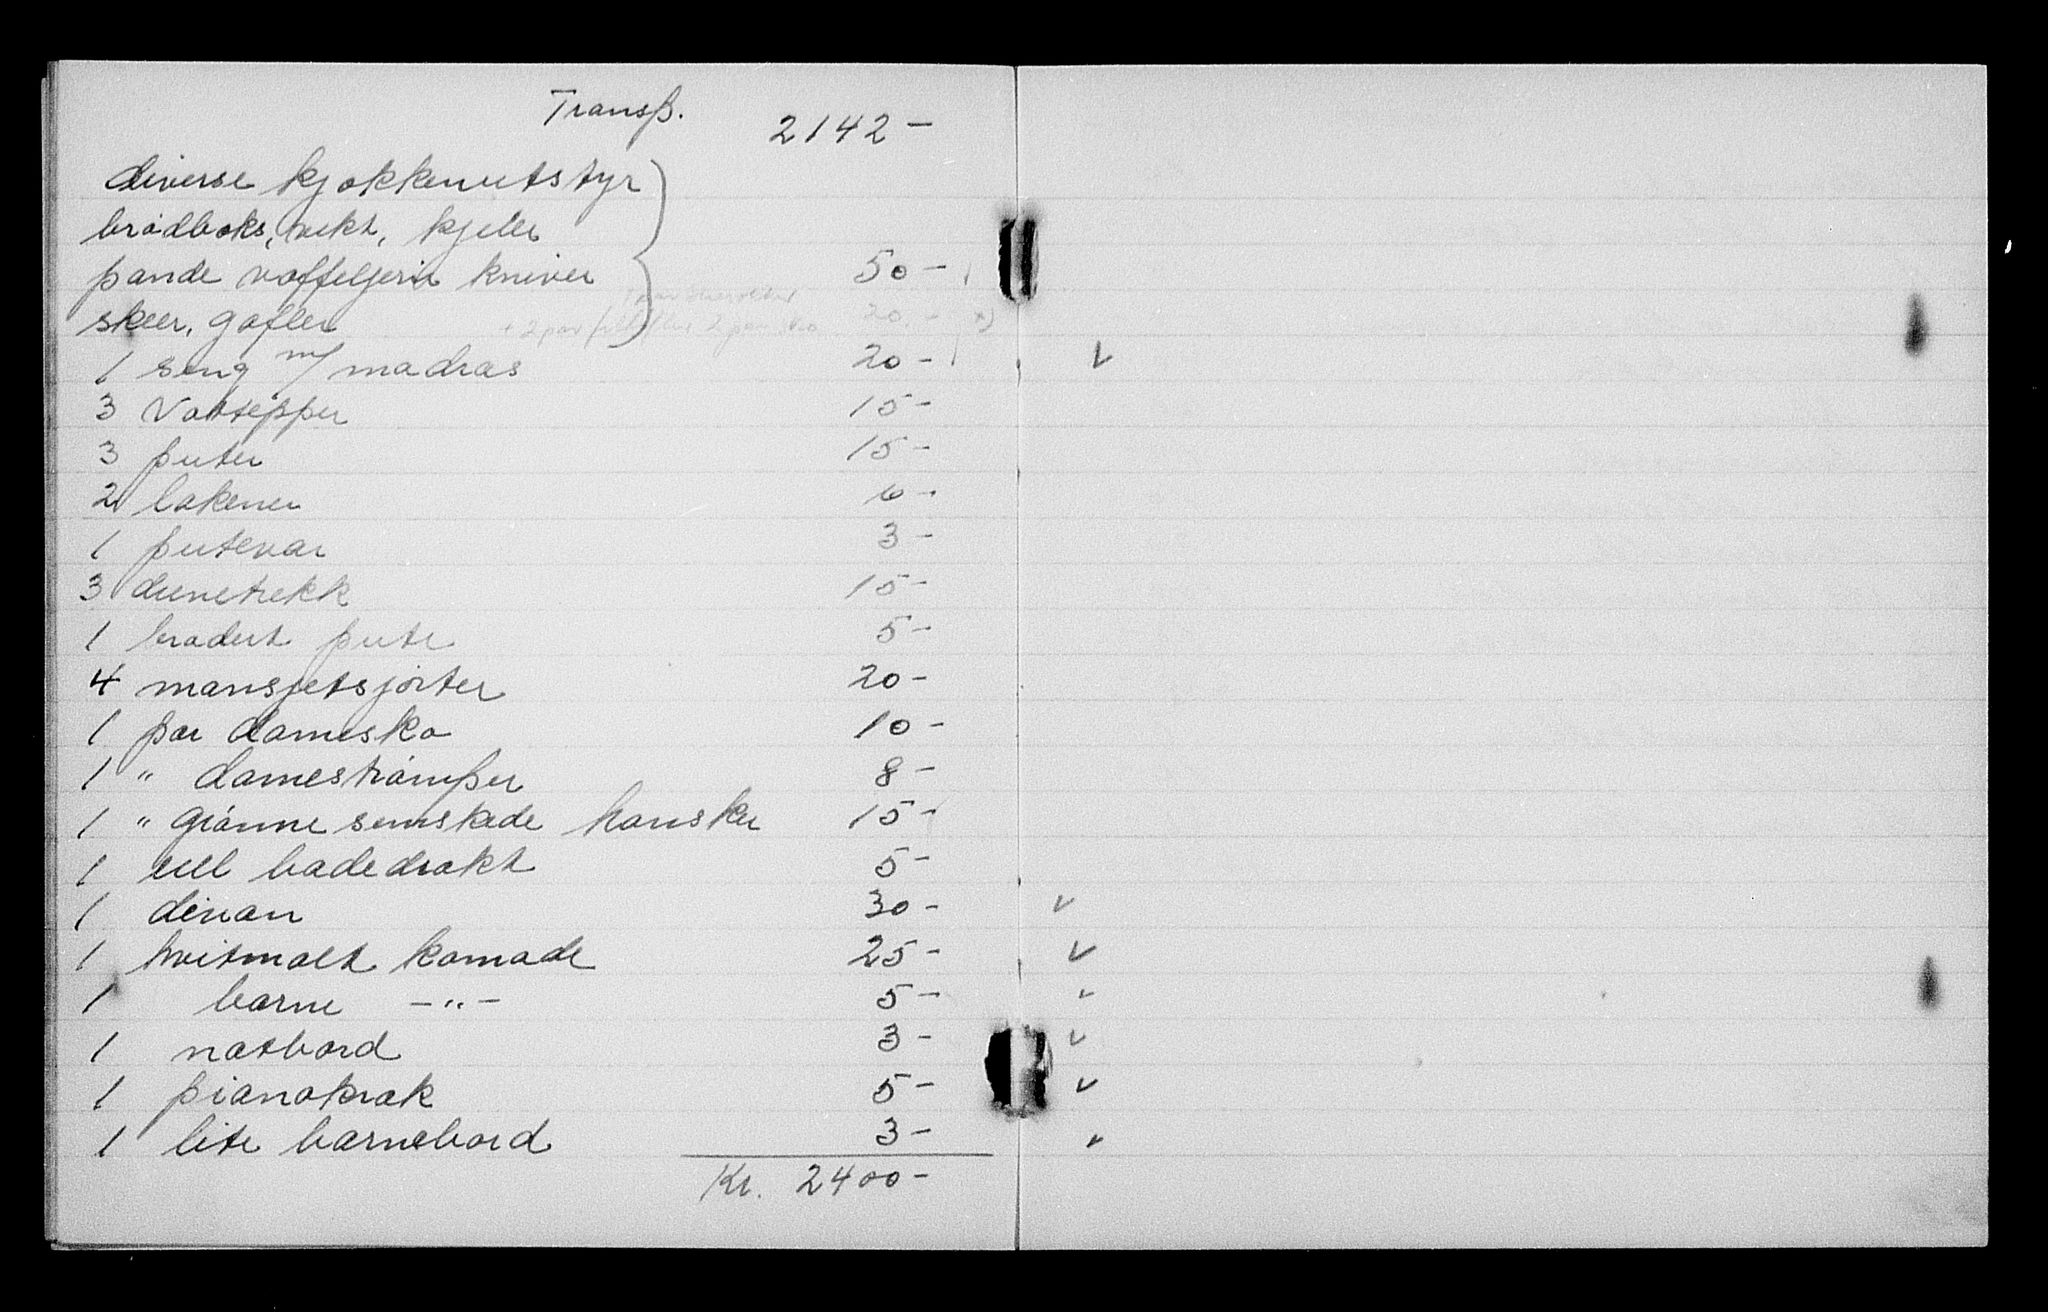 Transp. 2142 -
diverse kjøkkenutstyr
brødboks, vekt, kjeler
pande vaffeljern kniver 50 -
skeer, gafler + 2 par 2 par sko 20. -
1 seng m/ madras 20 - ✓
3 Vattepper 15 -
3 puter 15 -
2 lakener 6 -
1 putevar 3 -
3 dunetrekk 15 -
1 brodert pute 5 -
4 mansjetsjorter 20 -
1 par damesko 10 -
1 " damestrømper 8 -
1 " grønne semskede hansker 15 -
1 ull badedrakt 5 -
1 divan 30 - ✓
1 hvitmalt komode 25 - ✓
1 barne - " - 5 - ✓
1 natbord 3 - ✓
1 pianokrak 5 - ✓
1 lite barnebord 3 - ✓
Kr. 2400 -